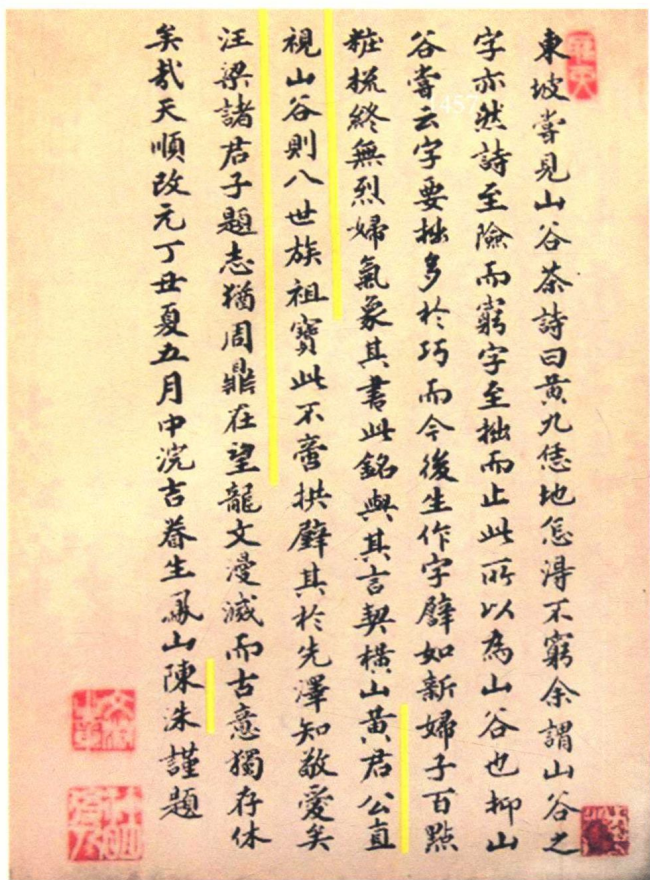 東坡嘗見山谷茶詩曰黃九恁地怎得不窮余謂山谷之
字亦然詩至險而窮字至拙而止此所以為山谷也抑山
谷嘗云字要拙多於巧而今後生作字譬如新婦子百點
粧梳終無烈婦氣象其書此銘與其言契橫山黃君公直
視山谷則八世族祖寶此不啻拱璧其於先澤知敬愛矣
汪梁諸君子題志猶周鼎在望龍文漫滅而古意獨存休
矣哉天順改元丁丑夏五月中浣吉眷生鳳山陳洙謹題
1457